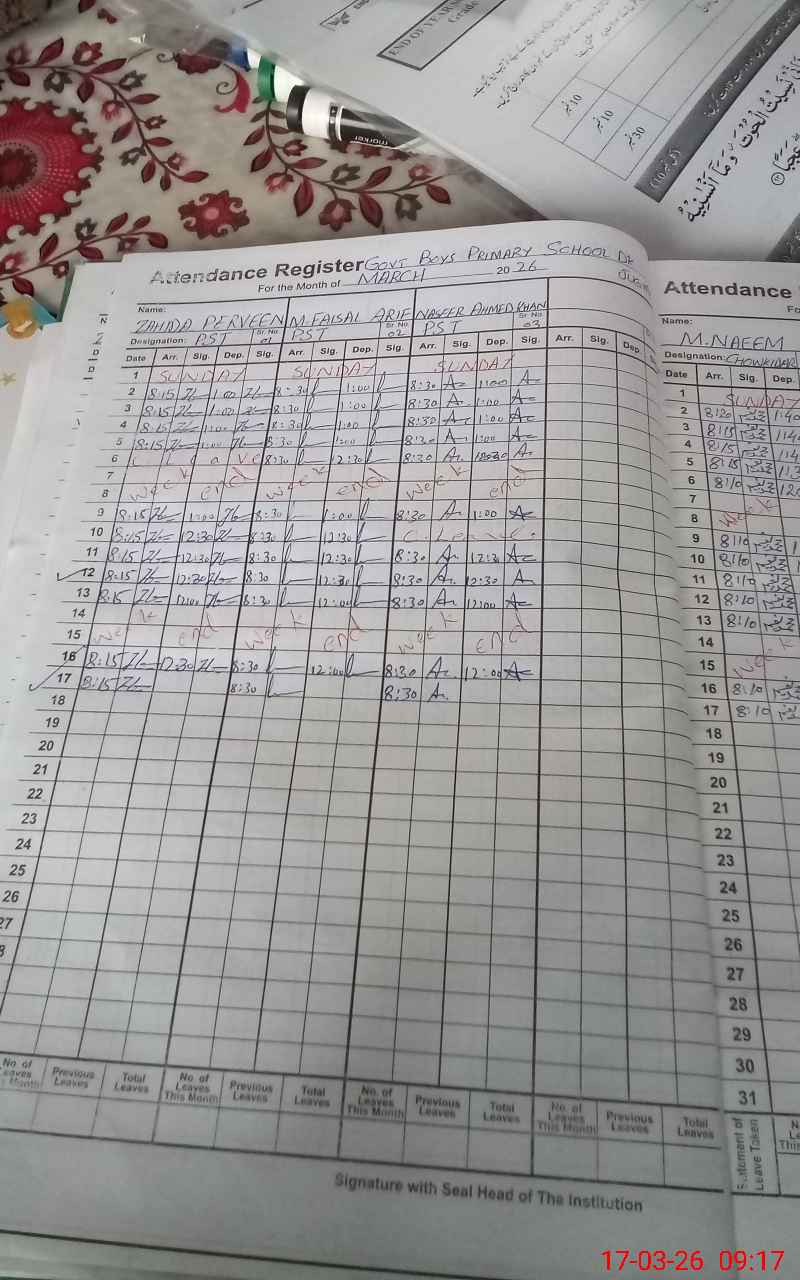 END OF YEAR
Grade
10 نمبر
10 نمبر
30 نمبر
marker
Attendance Register GOVT BOYS PRIMARY SCHOOL
For the Month of MARCH 2026
Name: ZAHIDA PERVEEN M.FAISAL ARIF NASEER AHMED KHAN
Designation: PST Sr. No. 01 PST Sr. No. 02 PST Sr. No. 03
Date Arr. Sig. Dep. Sig. Arr. Sig. Dep. Sig. Arr. Sig. Dep. Sig. Arr. Sig. Dep.
1 SUNDAY SUNDAY SUNDAY
2 8:15 1:00 8:30 1:00 8:30 1:00
3 8:15 1:00 8:30 1:00 8:30 1:00
4 8:15 1:00 8:30 1:00 8:30 1:00
5 8:15 1:00 8:30 1:00 8:30 1:00
6 C. Leave 8:30 12:30 8:30
7
8 week end week end week end
9 8:15 1:00 8:30 1:00 8:30 1:00
10 8:15 12:30 8:30 12:30 C. Leave.
11 8:15 12:30 8:30 12:30 8:30 12:30
12 8:15 12:30 8:30 12:30 8:30 12:30
13 8:15 12:00 8:30 12:00 8:30 12:00
14
15 week end week end week end
16 8:15 12:30 8:30 12:00 8:30 12:00
17 8:15 8:30 8:30
18
19
20
21
22
23
24
25
26
27
No. of Leaves This Month Previous Leaves Total Leaves No. of Leaves This Month Previous Leaves Total Leaves No. of Leaves This Month Previous Leaves Total Leaves No. of Leaves This Month Previous Leaves Total Leaves
Signature with Seal Head of The Institution
Attendance
Name:
M.NAEEM
Designation: CHOWKIDAR
Date Arr. Sig. Dep.
1 SUNDAY
2 8:20 1:40
3 8:15
4 8:15
5 8:15
6 8:10
7
8 week
9 8:10
10 8:10
11 8:10
12 8:10
13 8:10
14
15 week
16 8:10
17 8:10
18
19
20
21
22
23
24
25
26
27
28
29
30
31
Statement of Leave Taken
17-03-26 09:17